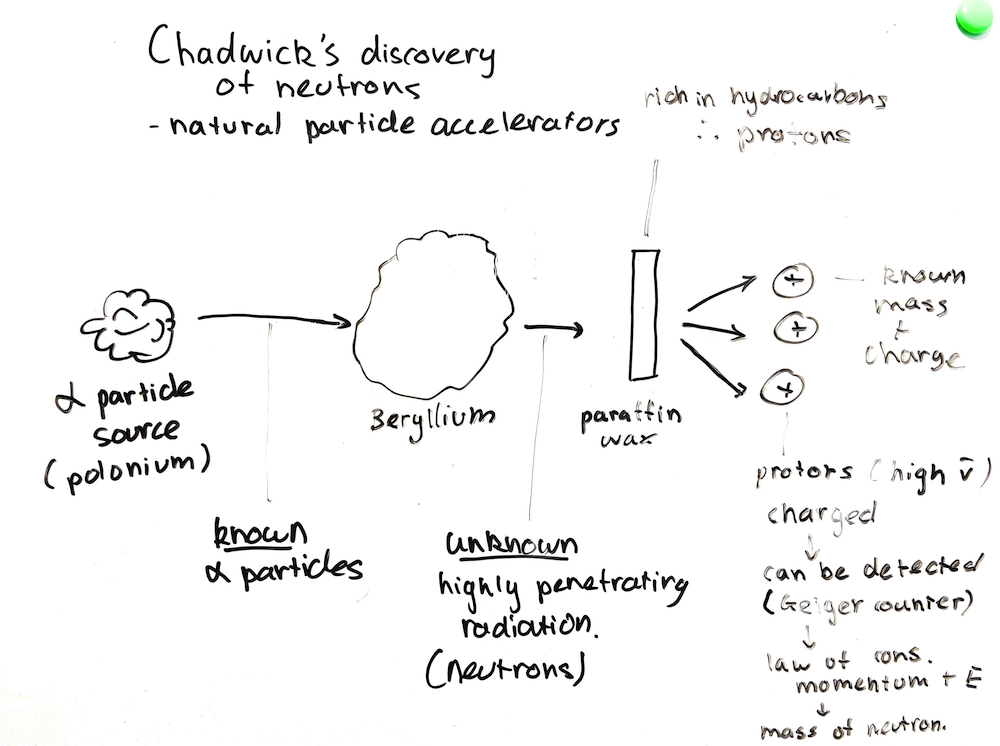 Chadwick's discovery
of neutrons
- natural particle accelerators
rich in hydrocarbons
∴ protons
α particle
source
(polonium)
Beryllium
paraffin
wax
+
+
+
known
mass
+
charge
known
α particles
unknown
highly penetrating
radiation.
(neutrons)
protons (high v̄)
charged
↓
can be detected
(Geiger counter)
↓
law of cons.
momentum + E
↓
mass of neutron.